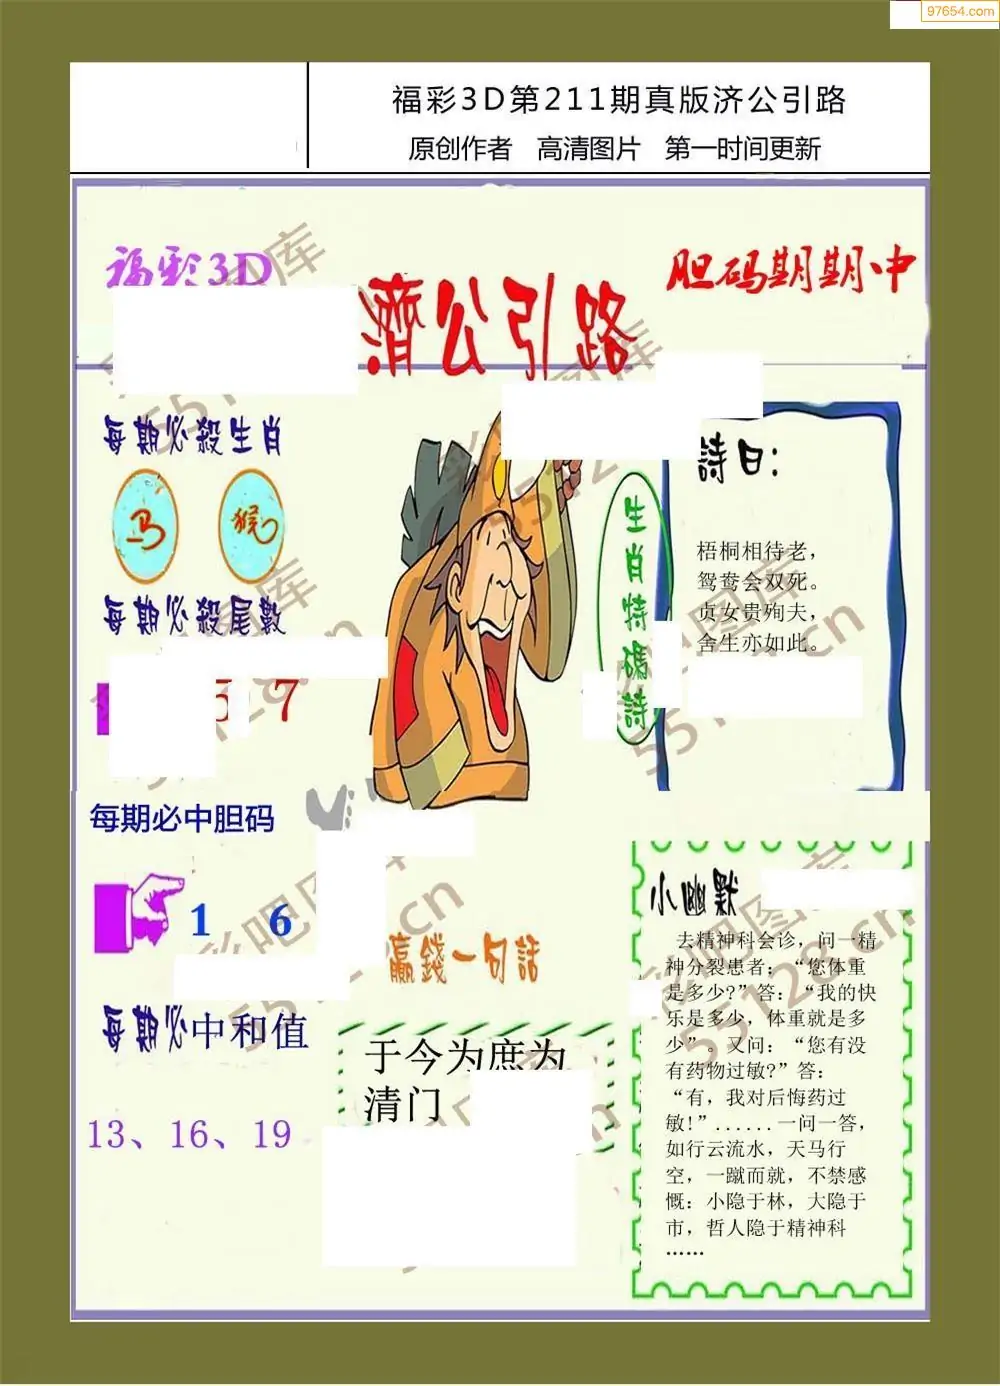 97654.com
福彩3D第211期真版济公引路
原创作者 高清图片 第一时间更新
福彩3D
濟公引路
胆码期期中
每期必殺生肖
马 猴
每期必殺尾數
5 7
每期必中胆码
1 6
每期必中和值
13、16、19
生肖特碼詩
詩曰:
梧桐相待老，
鸳鸯会双死。
贞女贵殉夫，
舍生亦如此。
贏錢一句話
于今为庶为
清门
小幽默
去精神科会诊，问一精
神分裂患者：“您体重
是多少?”答：“我的快
乐是多少，体重就是多
少”。又问：“您有没
有药物过敏?”答：
“有，我对后悔药过
敏!”......一问一答，
如行云流水，天马行
空，一蹴而就，不禁感
慨：小隐于林，大隐于
市，哲人隐于精神科
……
彩吧图库
55128.cn